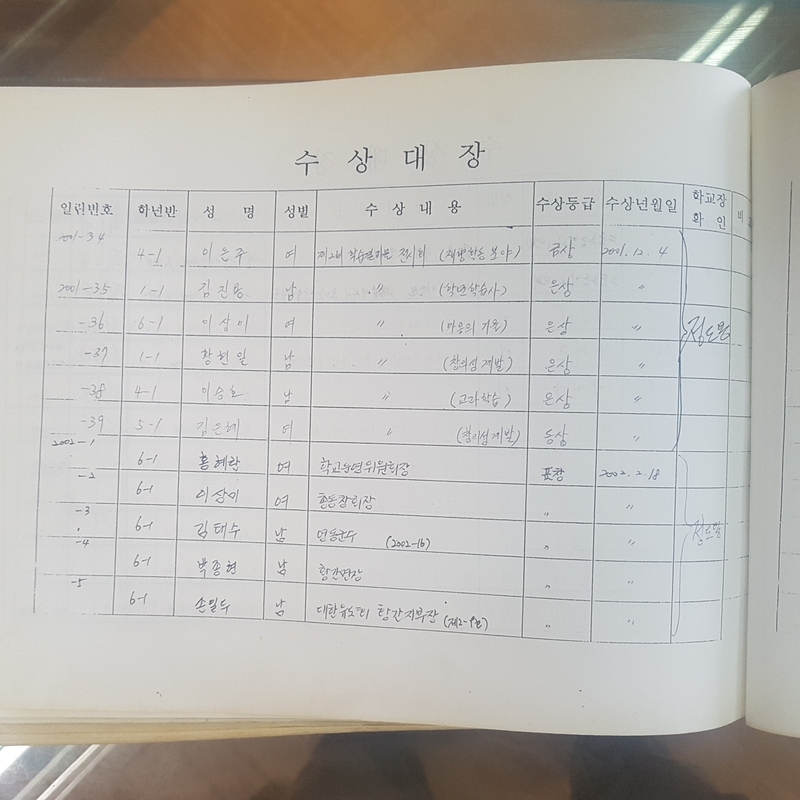 수 상 대 장
일련번호 학년반 성 명 성별 수 상 내 용 수상등급 수상년월일 학교장 확 인 비
2001-34 4-1 이은주 여 제2회 학습결과물 전시회 금상 2001. 12. 4
2001-35 1-1 김진용 남 〃 은상 〃
-36 6-1 이상미 여 〃 (마음의 거울) 은상 〃
-37 1-1 장현일 남 〃 (창의성 개발) 은상 〃
-38 4-1 이승호 남 〃 (교과학습) 은상 〃
-39 5-1 김은혜 여 〃 (창의성 개발) 동상 〃
2002-1 6-1 홍혜란 여 학교운영위원회장 표창 2002. 2. 18
-2 6-1 이상미 여 총동창회장 〃 〃
-3 6-1 김태수 남 영동군수 (2002-16) 〃 〃
-4 6-1 박종현 남 황간면장 〃 〃
-5 6-1 손일두 남 황간지부장 〃 〃